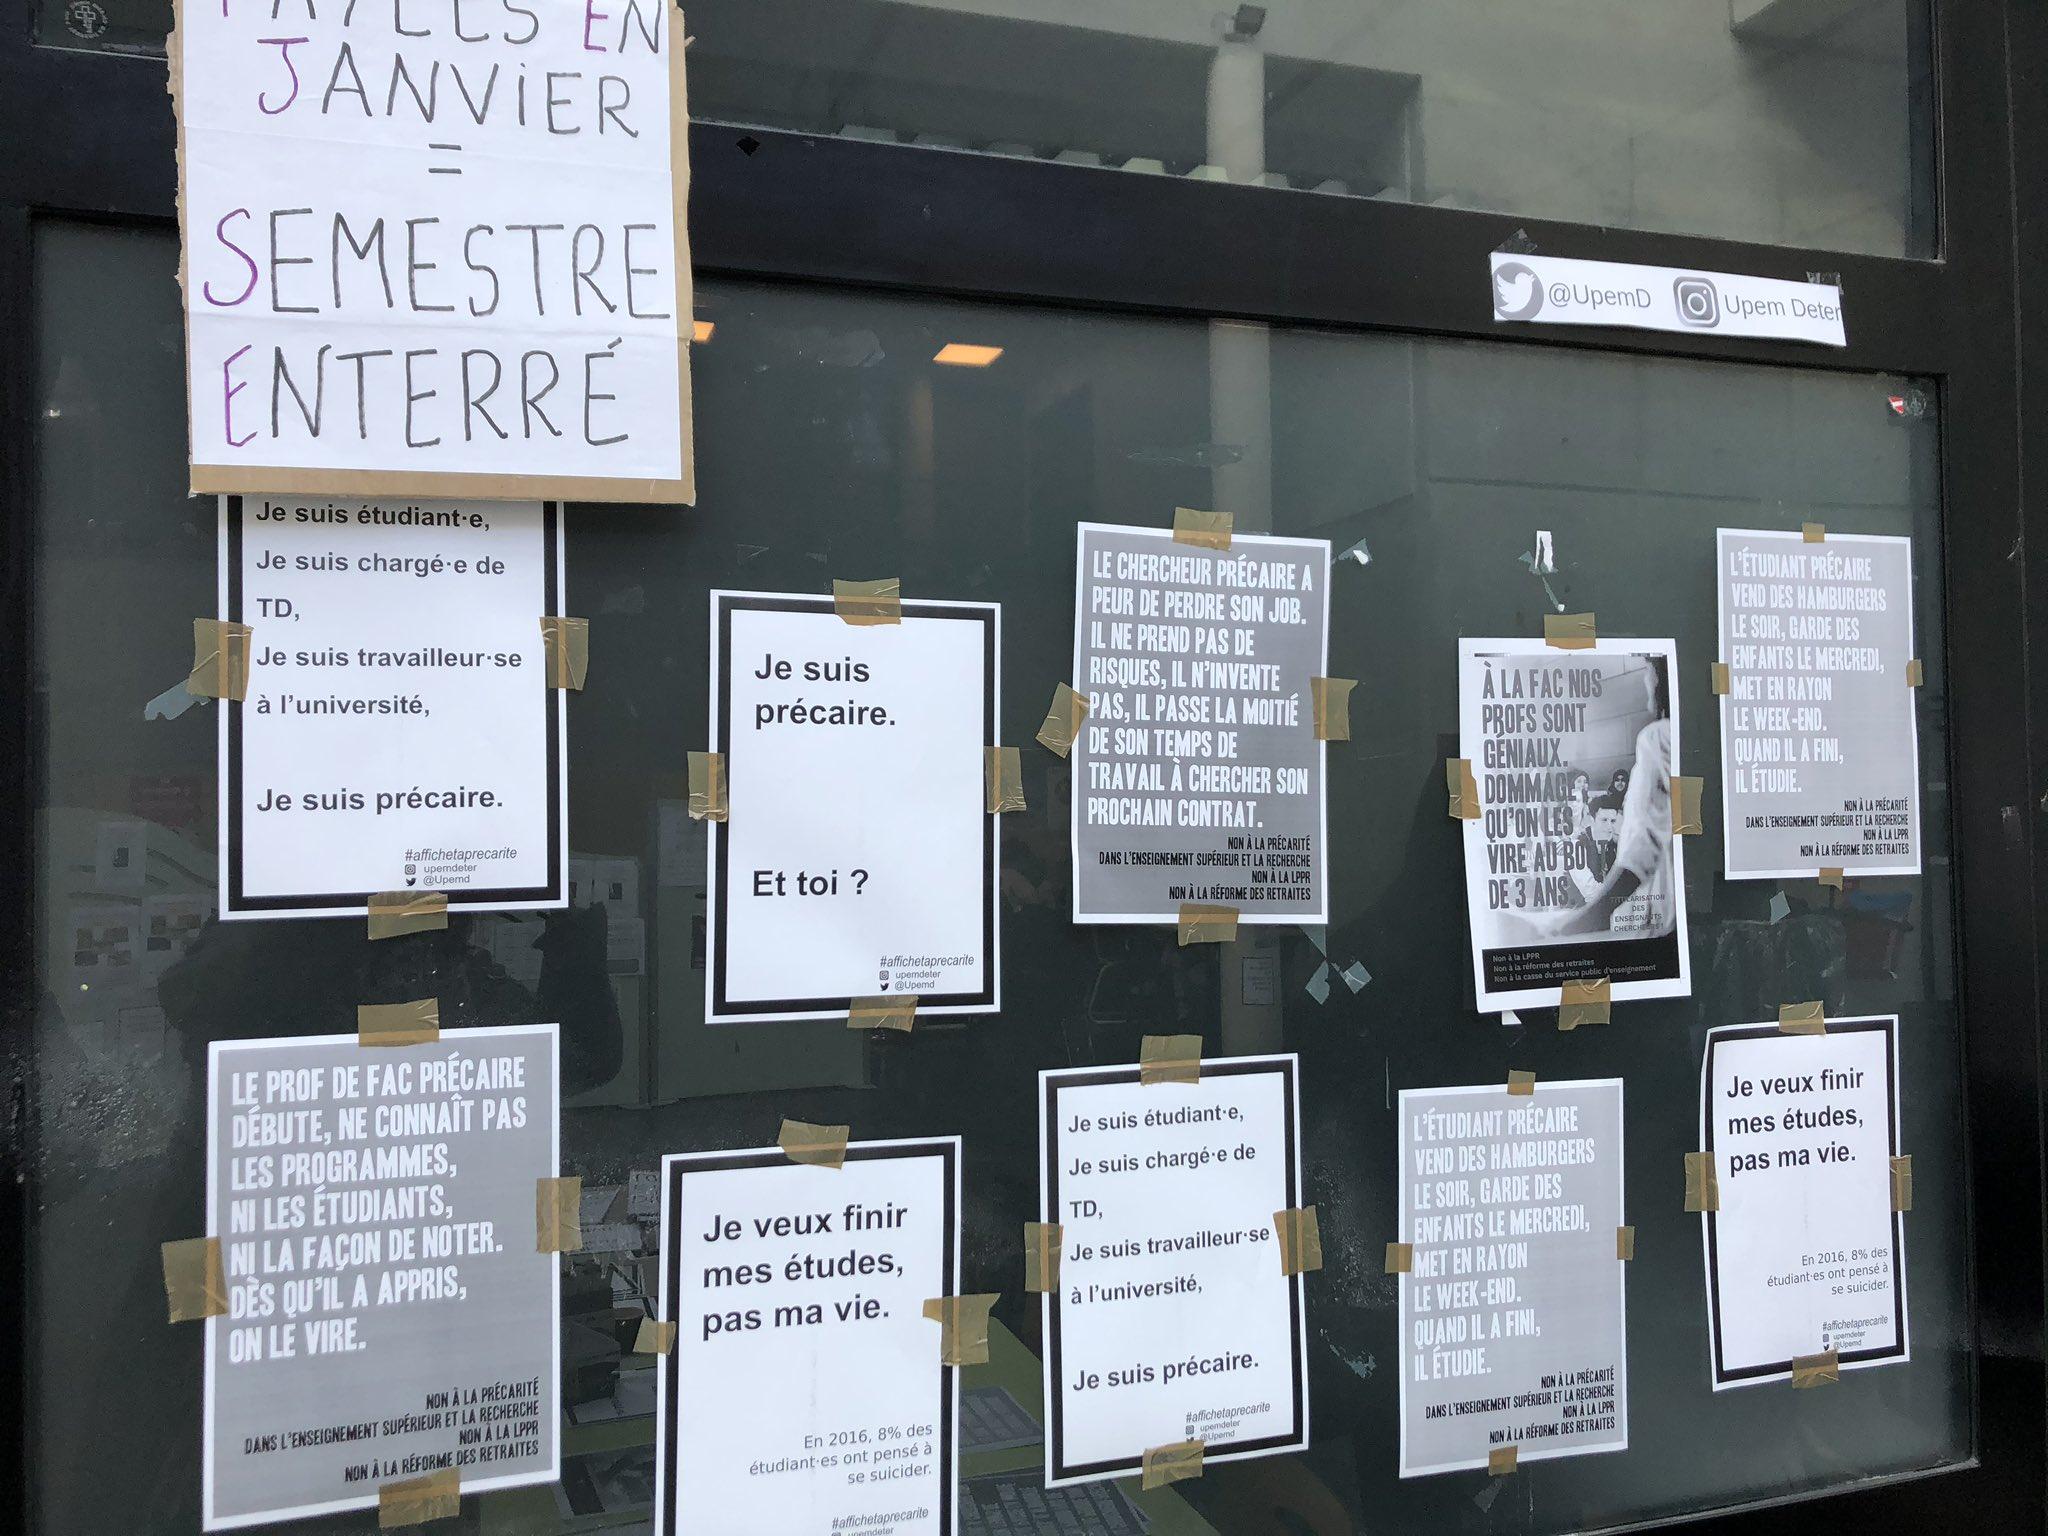 EN
JANVIER
=
SEMESTRE
ENTERRÉ
@UpemD Upem Deter
Je suis étudiant·e,
Je suis chargé·e de
TD,
Je suis travailleur·se
à l'université,
Je suis précaire.
#affichetaprecarite
upemdeter
@Upemd
Je suis
précaire.
Et toi ?
#affichetaprecarite
upemdeter
@Upemd
LE CHERCHEUR PRÉCAIRE A
PEUR DE PERDRE SON JOB.
IL NE PREND PAS DE
RISQUES, IL N'INVENTE
PAS, IL PASSE LA MOITIÉ
DE SON TEMPS DE
TRAVAIL À CHERCHER SON
PROCHAIN CONTRAT.
NON À LA PRÉCARITÉ
DANS L'ENSEIGNEMENT SUPÉRIEUR ET LA RECHERCHE
NON À LA LPPR
NON À LA RÉFORME DES RETRAITES
À LA FAC NOS
PROFS SONT
GÉNIAUX.
DOMMAGE
QU'ON LES
VIRE AU BOUT
DE 3 ANS.
TITULARISATION
DES
ENSEIGNANTS
CHERCHEURS !
Non à la LPPR
Non à la réforme des retraites
Non à la casse du service public d'enseignement
L'ÉTUDIANT PRÉCAIRE
VEND DES HAMBURGERS
LE SOIR, GARDE DES
ENFANTS LE MERCREDI,
MET EN RAYON
LE WEEK-END.
QUAND IL A FINI,
IL ÉTUDIE.
NON À LA PRÉCARITÉ
DANS L'ENSEIGNEMENT SUPÉRIEUR ET LA RECHERCHE
NON À LA LPPR
NON À LA RÉFORME DES RETRAITES
LE PROF DE FAC PRÉCAIRE
DÉBUTE, NE CONNAÎT PAS
LES PROGRAMMES,
NI LES ÉTUDIANTS,
NI LA FAÇON DE NOTER.
DÈS QU'IL A APPRIS,
ON LE VIRE.
NON À LA PRÉCARITÉ
DANS L'ENSEIGNEMENT SUPÉRIEUR ET LA RECHERCHE
NON À LA LPPR
NON À LA RÉFORME DES RETRAITES
Je veux finir
mes études,
pas ma vie.
En 2016, 8% des
étudiant·es ont pensé à
se suicider.
#affichetaprecarite
upemdeter
Je suis étudiant·e,
Je suis chargé·e de
TD,
Je suis travailleur·se
à l'université,
Je suis précaire.
#affichetaprecarite
upemdeter
@Upemd
L'ÉTUDIANT PRÉCAIRE
VEND DES HAMBURGERS
LE SOIR, GARDE DES
ENFANTS LE MERCREDI,
MET EN RAYON
LE WEEK-END.
QUAND IL A FINI,
IL ÉTUDIE.
NON À LA PRÉCARITÉ
DANS L'ENSEIGNEMENT SUPÉRIEUR ET LA RECHERCHE
NON À LA LPPR
NON À LA RÉFORME DES RETRAITES
Je veux finir
mes études,
pas ma vie.
En 2016, 8% des
étudiant·es ont pensé à
se suicider.
#affichetaprecarite
upemdeter
@Upemd